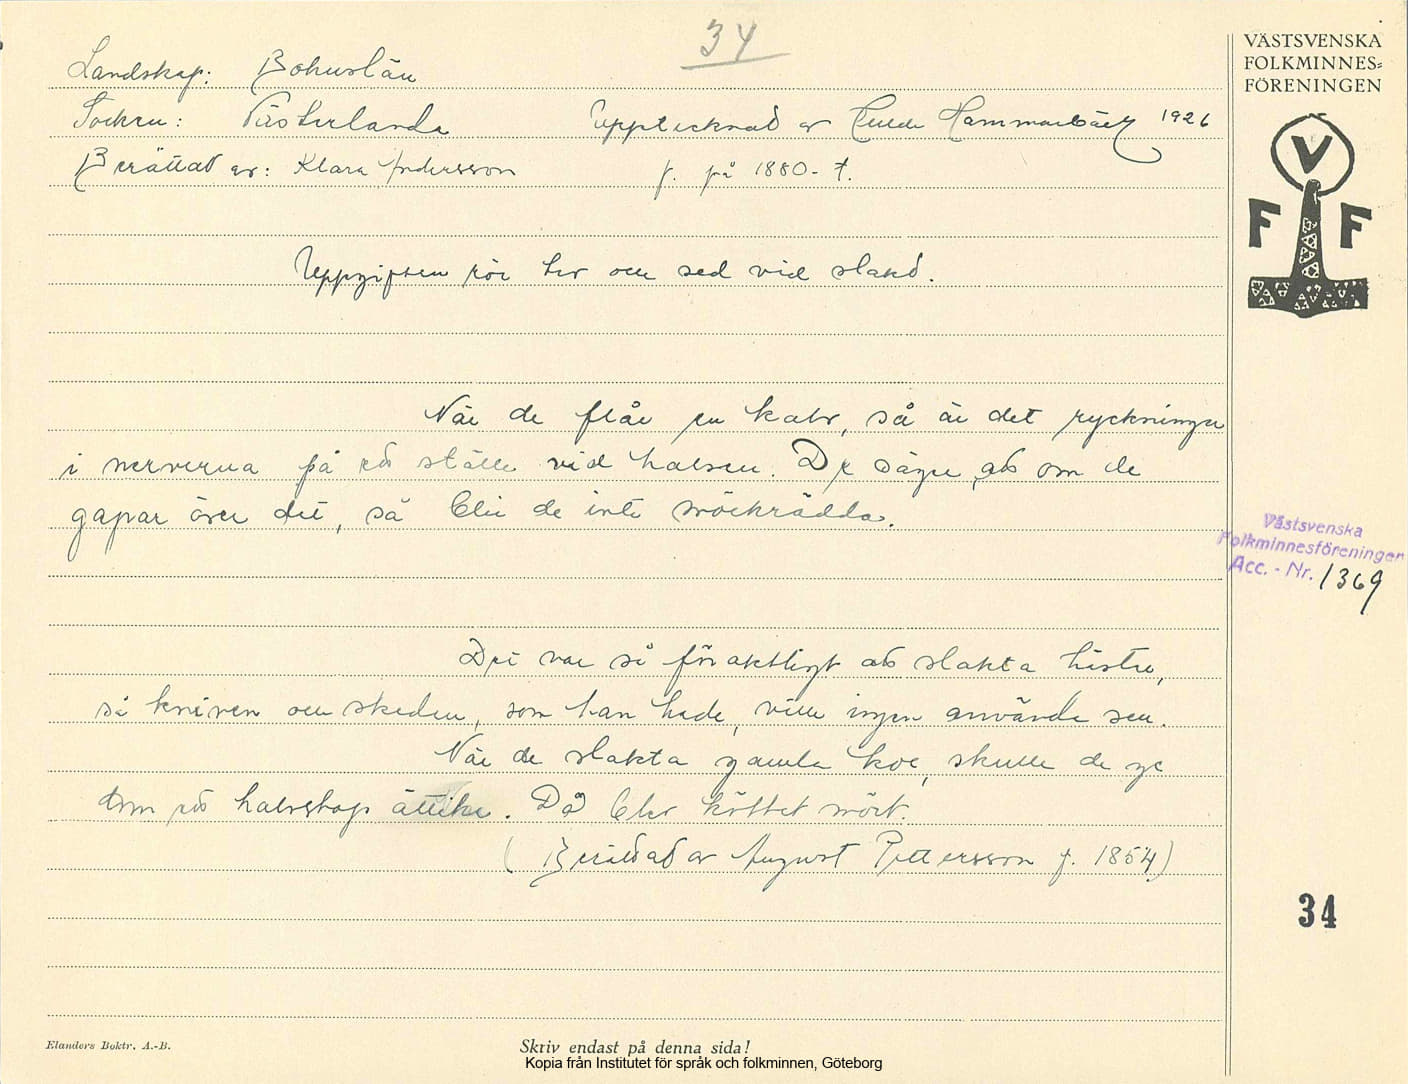 34
Landskap: Bohuslän
Socken: Västerlanda Upptecknad av Hulda Hammarbäck 1926
Berättat av: Klara Andersson f. på 1880-t.
Uppgiften rör tro och sed vid slakt.
När de flår en kalv, så är det ryckningar
i nerverna på ett ställe vid halsen. De säger att om de
gapar över det, så blir de inte mörkrädda.
Det var så föraktligt att slakta hästar,
så kniven och skeden, som han hade, ville ingen använda sen.
När de slakta gamla kor, skulle de ge
dom ett halvstop ättika. Då blev köttet mört.
(Berättat av August Pettersson f. 1854)
VÄSTSVENSKA
FOLKMINNES=
FÖRENINGEN
V
F F
Västsvenska
Folkminnesföreningen
Acc. - Nr. 1369
34
Elanders Boktr. A.-B.
Skriv endast på denna sida!
Kopia från Institutet för språk och folkminnen, Göteborg